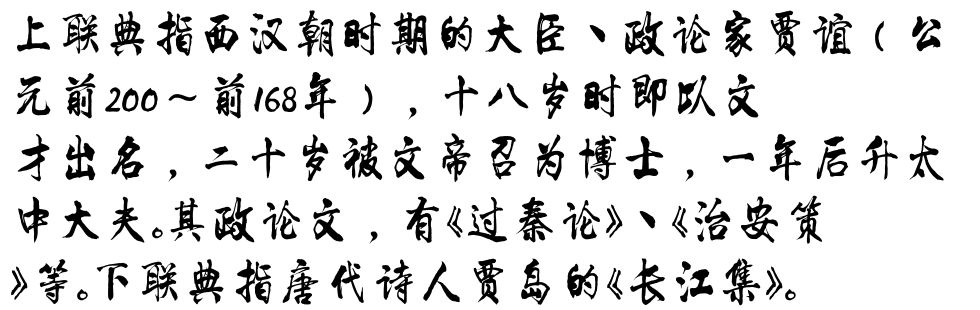 上联典指西汉朝时期的大臣、政论家贾谊（公
元前200～前168年），十八岁时即以文
才出名，二十岁被文帝召为博士，一年后升太
中大夫。其政论文，有《过秦论》、《治安策
》等。下联典指唐代诗人贾岛的《长江集》。